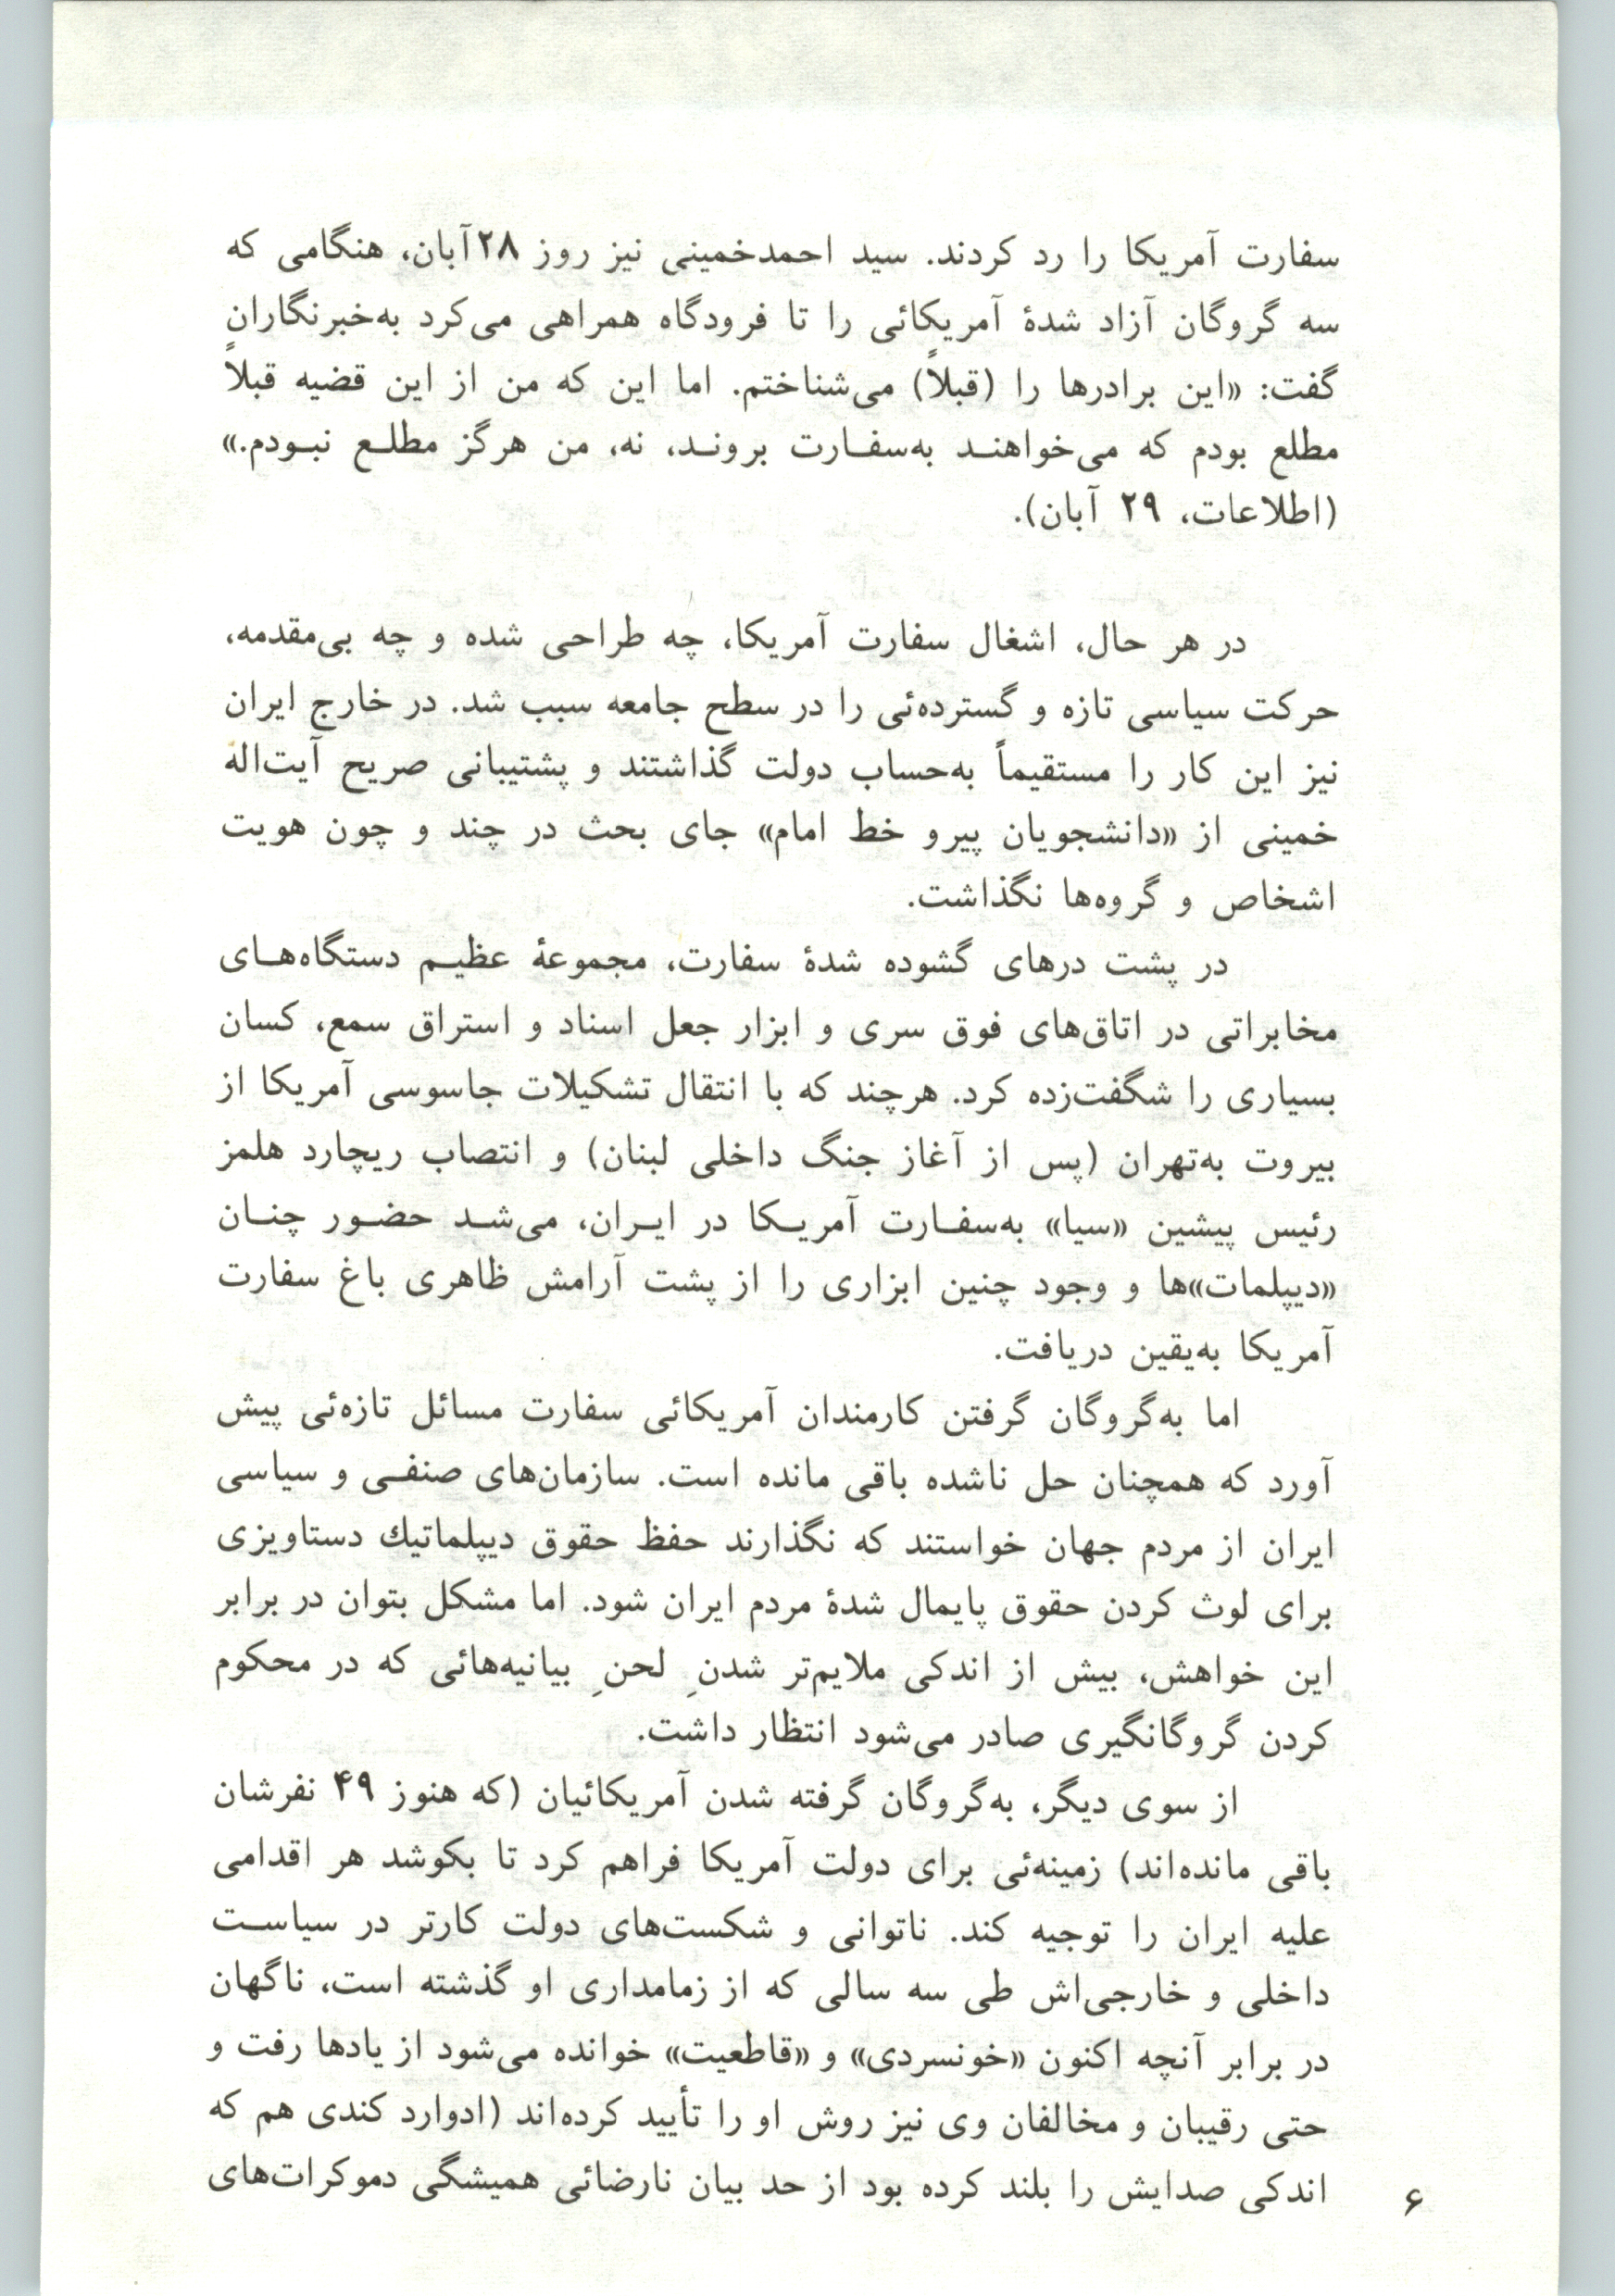 سفارت آمریکا را رد کردند. سید احمدخمینی نیز روز ۲۸آبان، هنگامی که
سه گروگان آزاد شدهٔ آمریکائی را تا فرودگاه همراهی می‌کرد به‌خبرنگاران
گفت: «این برادرها را (قبلاً) می‌شناختم. اما این که من از این قضیه قبلاً
مطلع بودم که می‌خواهند به‌سفارت بروند، نه، من هرگز مطلع نبودم.»
(اطلاعات، ۲۹ آبان).
در هر حال، اشغال سفارت آمریکا، چه طراحی شده و چه بی‌مقدمه،
حرکت سیاسی تازه و گسترده‌ئی را در سطح جامعه سبب شد. در خارج ایران
نیز این کار را مستقیماً به‌حساب دولت گذاشتند و پشتیبانی صریح آیت‌اله
خمینی از «دانشجویان پیرو خط امام» جای بحث در چند و چون هویت
اشخاص و گروه‌ها نگذاشت.
در پشت درهای گشوده شدهٔ سفارت، مجموعهٔ عظیم دستگاه‌های
مخابراتی در اتاق‌های فوق سری و ابزار جعل اسناد و استراق سمع، کسان
بسیاری را شگفت‌زده کرد. هرچند که با انتقال تشکیلات جاسوسی آمریکا از
بیروت به‌تهران (پس از آغاز جنگ داخلی لبنان) و انتصاب ریچارد هلمز
رئیس پیشین «سیا» به‌سفارت آمریکا در ایران، می‌شد حضور چنان
«دیپلمات»ها و وجود چنین ابزاری را از پشت آرامش ظاهری باغ سفارت
آمریکا به‌یقین دریافت.
اما به‌گروگان گرفتن کارمندان آمریکائی سفارت مسائل تازه‌ئی پیش
آورد که همچنان حل ناشده باقی مانده است. سازمان‌های صنفی و سیاسی
ایران از مردم جهان خواستند که نگذارند حفظ حقوق دیپلماتیك دستاویزی
برای لوث کردن حقوق پایمال شدهٔ مردم ایران شود. اما مشکل بتوان در برابر
این خواهش، بیش از اندکی ملایم‌تر شدنِ لحنِ بیانیه‌هائی که در محکوم
کردن گروگانگیری صادر می‌شود انتظار داشت.
از سوی دیگر، به‌گروگان گرفته شدن آمریکائیان (که هنوز ۴۹ نفرشان
باقی مانده‌اند) زمینه‌ئی برای دولت آمریکا فراهم کرد تا بکوشد هر اقدامی
علیه ایران را توجیه کند. ناتوانی و شکست‌های دولت کارتر در سیاست
داخلی و خارجی‌اش طی سه سالی که از زمامداری او گذشته است، ناگهان
در برابر آنچه اکنون «خونسردی» و «قاطعیت» خوانده می‌شود از یادها رفت و
حتی رقیبان و مخالفان وی نیز روش او را تأیید کرده‌اند (ادوارد کندی هم که
اندکی صدایش را بلند کرده بود از حد بیان نارضائی همیشگی دموکرات‌های
۶